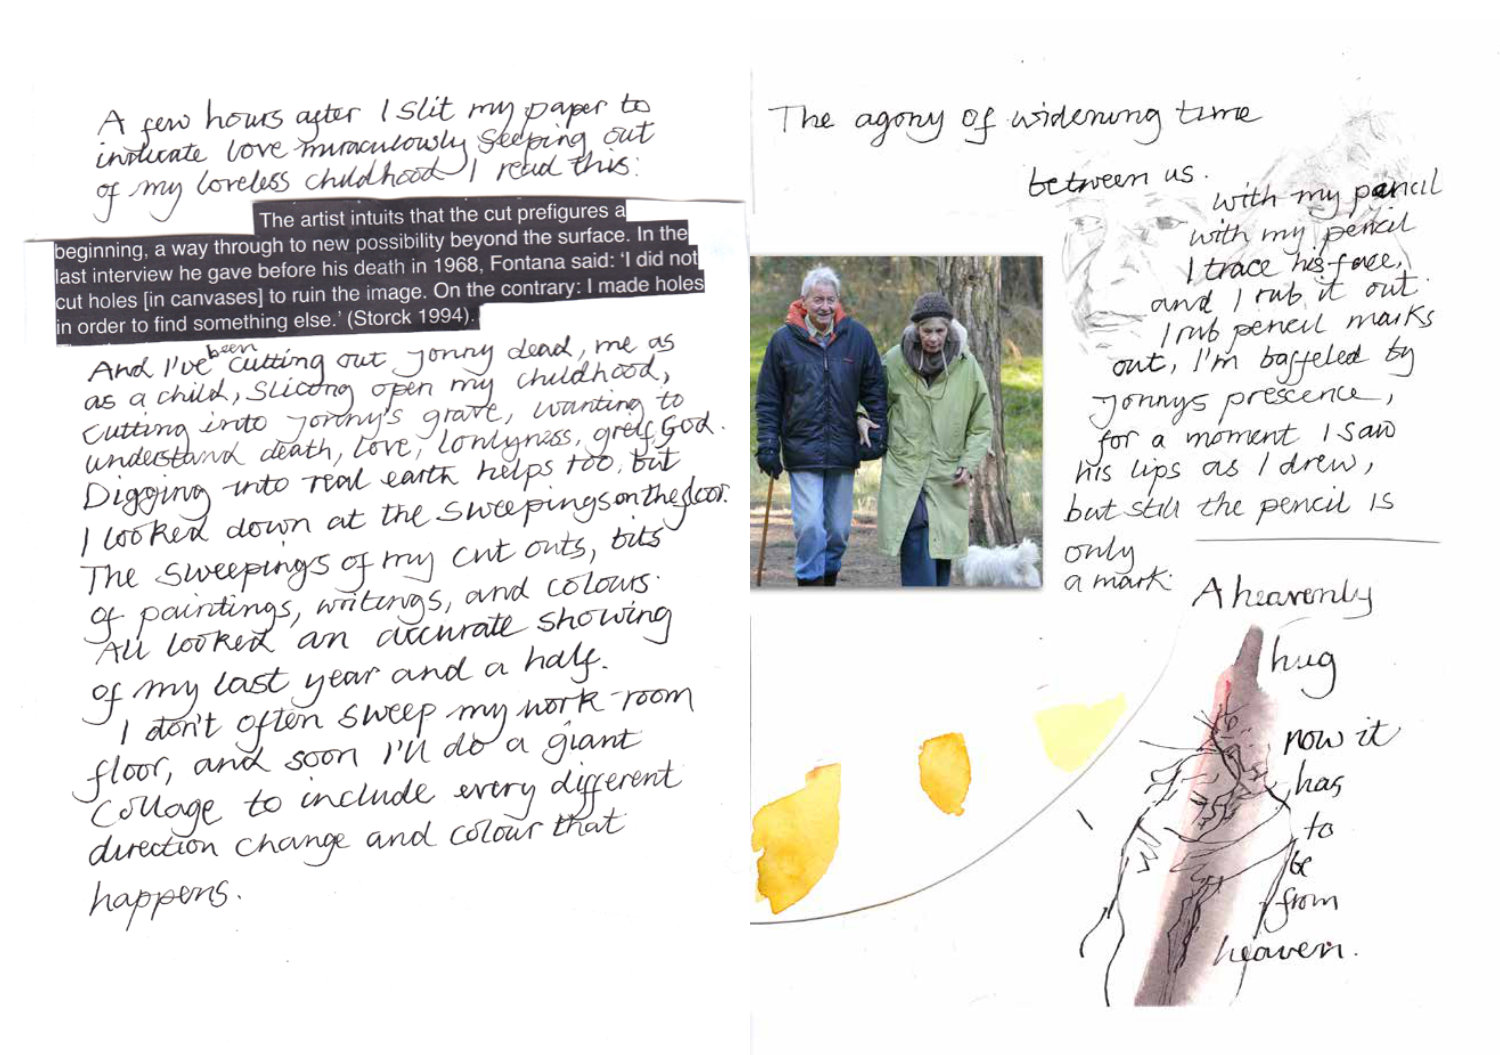 A few hours after I slit my paper to
indicate love miraculously seeping out
of my loveless childhood I read this:
The artist intuits that the cut prefigures a
beginning, a way through to new possibility beyond the surface. In the
last interview he gave before his death in 1968, Fontana said: ‘I did not
cut holes [in canvases] to ruin the image. On the contrary: I made holes
in order to find something else.’ (Storck 1994).
And I've been cutting out Jonny dead, me as
as a child, slicing open my childhood,
cutting into Jonny's grave, wanting to
understand death, love, lonlyness, greif, God.
Digging into real earth helps too, but
I looked down at the sweepings on the floor.
The sweepings of my cut outs, bits
of paintings, writings, and colours.
All looked an accurate showing
of my last year and a half.
I don't often sweep my work-room
floor, and soon I'll do a giant
collage to include every different
direction change and colour that
happens.
The agony of widening time
between us.
with my pencil
with my pencil
I trace his face,
and I rub it out.
I rub pencil marks
out, I'm baffeled by
Jonnys prescence,
for a moment I saw
his lips as I drew,
but still the pencil is
only
a mark.
A heavenly
hug
now it
has
to
be
from
heaven.